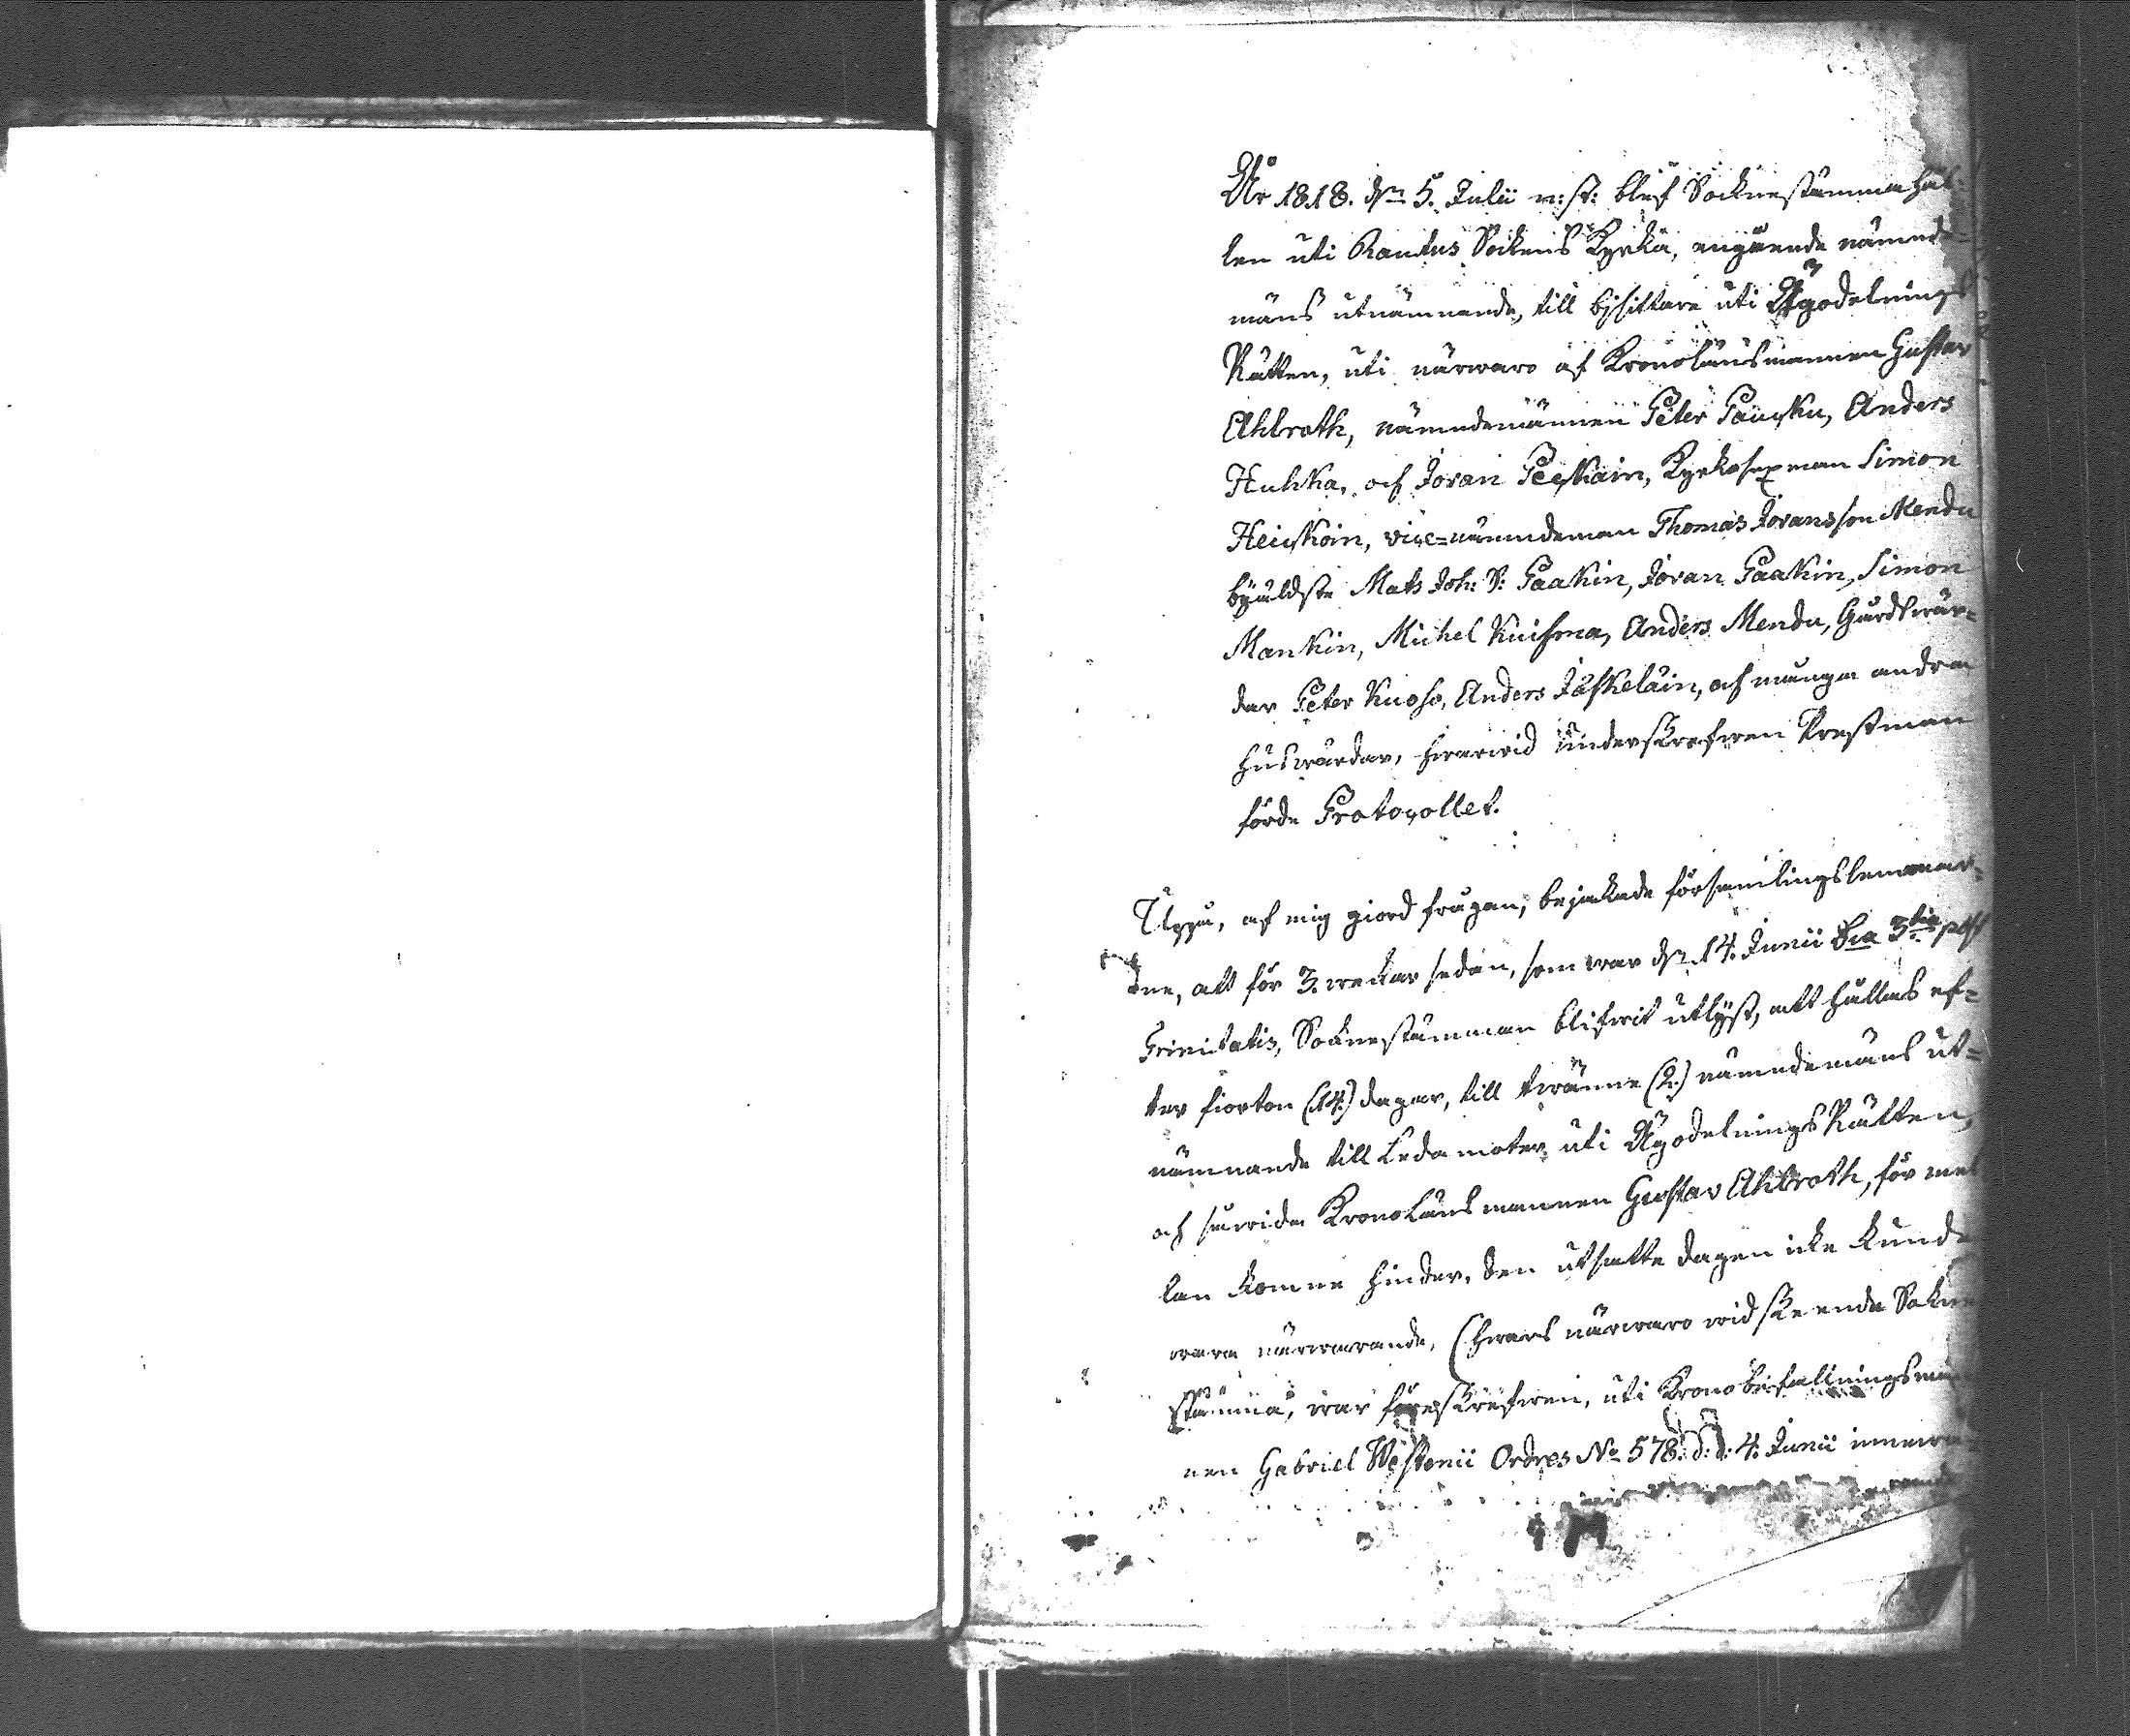 År 1818. d:n 5. Julii n: st: blef Socknestämma hål-
len uti Rautus Sockens Kyrka, angående nämnde-
mäns utnämnande, till bisittare uti Ägodelnings
Rätten, uti närwaro af Kronolänsmannen Gustav
Ahlroth, nämndemännen Peter Paucku, Anders
Huhka, och Jöran Peckain, Kyrkosexman Simon
Heickoin, vice=nämndeman Thomas Jöransson Mendu
byäldste Mats Joh: S: Paakin, Jöran Paakin, Simon
Mankin, Michel Kuisma, Anders Mendu, Gårdswär=
dar Peter Kuoso, Anders Jäskeläin, och många andra
huswärdar, hwarwid underskrefwen Prestman
förde Protocollet.
Uppå, af mig giord frågan, bejakade församlingslemmar=
ne, att för 3. weckor sedan, som war d:n 14. Junii D:ca 3:tia post
Trinitatis, Socknestämman blifwit utlyst, att hållas ef=
ter fiorton (14.) dagar, till twänne (2.) nämndemäns ut=
nämnande till Ledamoter uti Ägodelnings Rätten,
och såwida Kronolänsmannen Gustav Ahlroth, för mel
lan komne hinder, den utsatte dagen icke kunde
wara närwarande, (hwars närwaro wid skeende Sockne
stämma, war föreskrefwen, uti Kronobefallningsman
nen Gabriel Westenii Ordres No 578. d: d: 4. Junii innewa-
rande